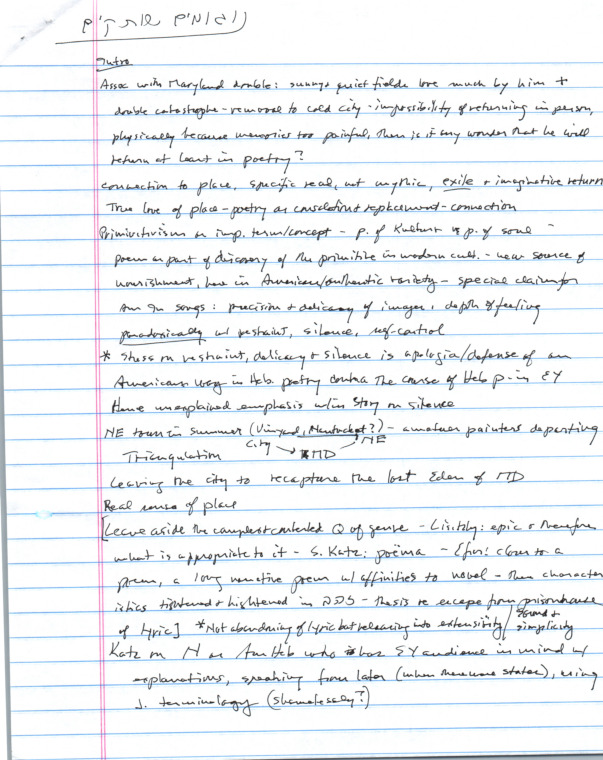 ויגואמים שותקים
Intro
Assoc with Maryland double: sunny + quiet fields love much by him +
double catastrophe - removal to cold city - impossibility of returning in person,
physically because memories too painful, then is it any wonder that he will
return at least in poetry?
connection to place, specific real, not mythic, exile + imaginative return
True love of place - poetry as consolation + replacement - connection
Primivitivism as imp. term/concept - p. of Kulture vs p. of soul -
poem as part of discovery of the primitive in modern cult. - new source of
nourishment, here in American/authentic variety - special claim for
Am In songs: precision + delicacy of images, depth of feeling
paradoxically w/ restraint, silence, self-control
* Stress on restraint, delicacy + silence is apologia/defense of an
American way in Heb. poetry contra the course of Heb p- in EY
Hence unexplained emphasis w/in story on silence
NE town in summer (Vinyard, Nantucket?) - amateur painters departing
Triangulation city → MD → NE
Leaving the city to recapture the lost Eden of MD
Real sense of place
[Leave aside the complex + contested Q of genre - Lisitzky: epic + therefore
what is appropriate to it - S. Katz: poëma - Efros: closer to a
poem, a long narrative poem w/ affinities to novel - then character
istics tightened + hightened in - thesis re escape from prisonhouse
of lyric] *Not abandoning of lyric but releasing into extensivity/ scene + simplicity
Katz on N as Am Heb who has EY audience in mind w/
explanations, speaking from later (when there were states), using
J. terminology (shamelessly?)